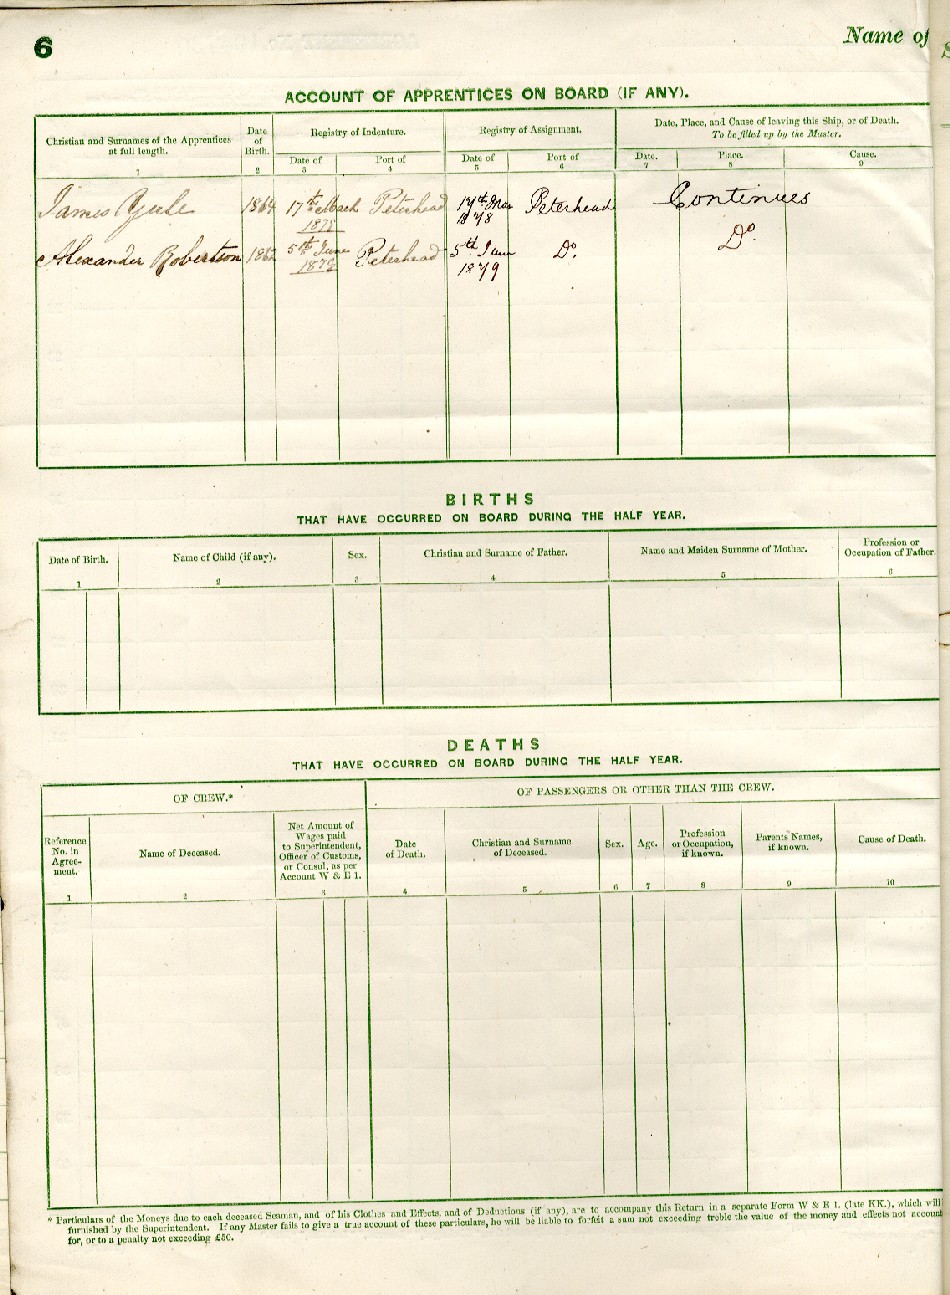 6
Name of
ACCOUNT OF APPRENTICES ON BOARD (IF ANY).
Christian and Surnames of the Apprentices at full length.
Date of Birth.
Registry of Indenture.
Registry of Assignment.
Date, Place, and Cause of leaving this Ship, or of Death.
To be filled up by the Master.
Date of
Port of
Date of
Port of
Date.
Place.
Cause.
1 2 3 4 5 6 7 8 9
James Yule 1864 17th March 1878 Peterhead 17th Mar 1878 Peterhead Continues
Alexander Robertson 1862 5th June 1879 Peterhead 5th June 1879 Do. Do.
BIRTHS
THAT HAVE OCCURRED ON BOARD DURING THE HALF YEAR.
Date of Birth.
Name of Child (if any).
Sex.
Christian and Surname of Father.
Name and Maiden Surname of Mother.
Profession or Occupation of Father.
1 2 3 4 5 6
DEATHS
THAT HAVE OCCURRED ON BOARD DURING THE HALF YEAR.
OF CREW.*
OF PASSENGERS OR OTHER THAN THE CREW.
Reference No. in Agreement.
Name of Deceased.
Net Amount of Wages paid to Superintendent, Officer of Customs, or Consul, as per Account W & E 1.
Date of Death.
Christian and Surname of Deceased.
Sex.
Age.
Profession or Occupation, if known.
Parents' Names, if known.
Cause of Death.
1 2 3 4 5 6 7 8 9 10
* Particulars of the Moneys due to each deceased Seaman, and of his Clothes and Effects, and of Deductions (if any), are to accompany this Return in a separate Form W & E 1. (late KK.), which will
furnished by the Superintendent. If any Master fails to give a true account of these particulars, he will be liable to forfeit a sum not exceeding treble the value of the money and effects not account
for, or to a penalty not exceeding £50.